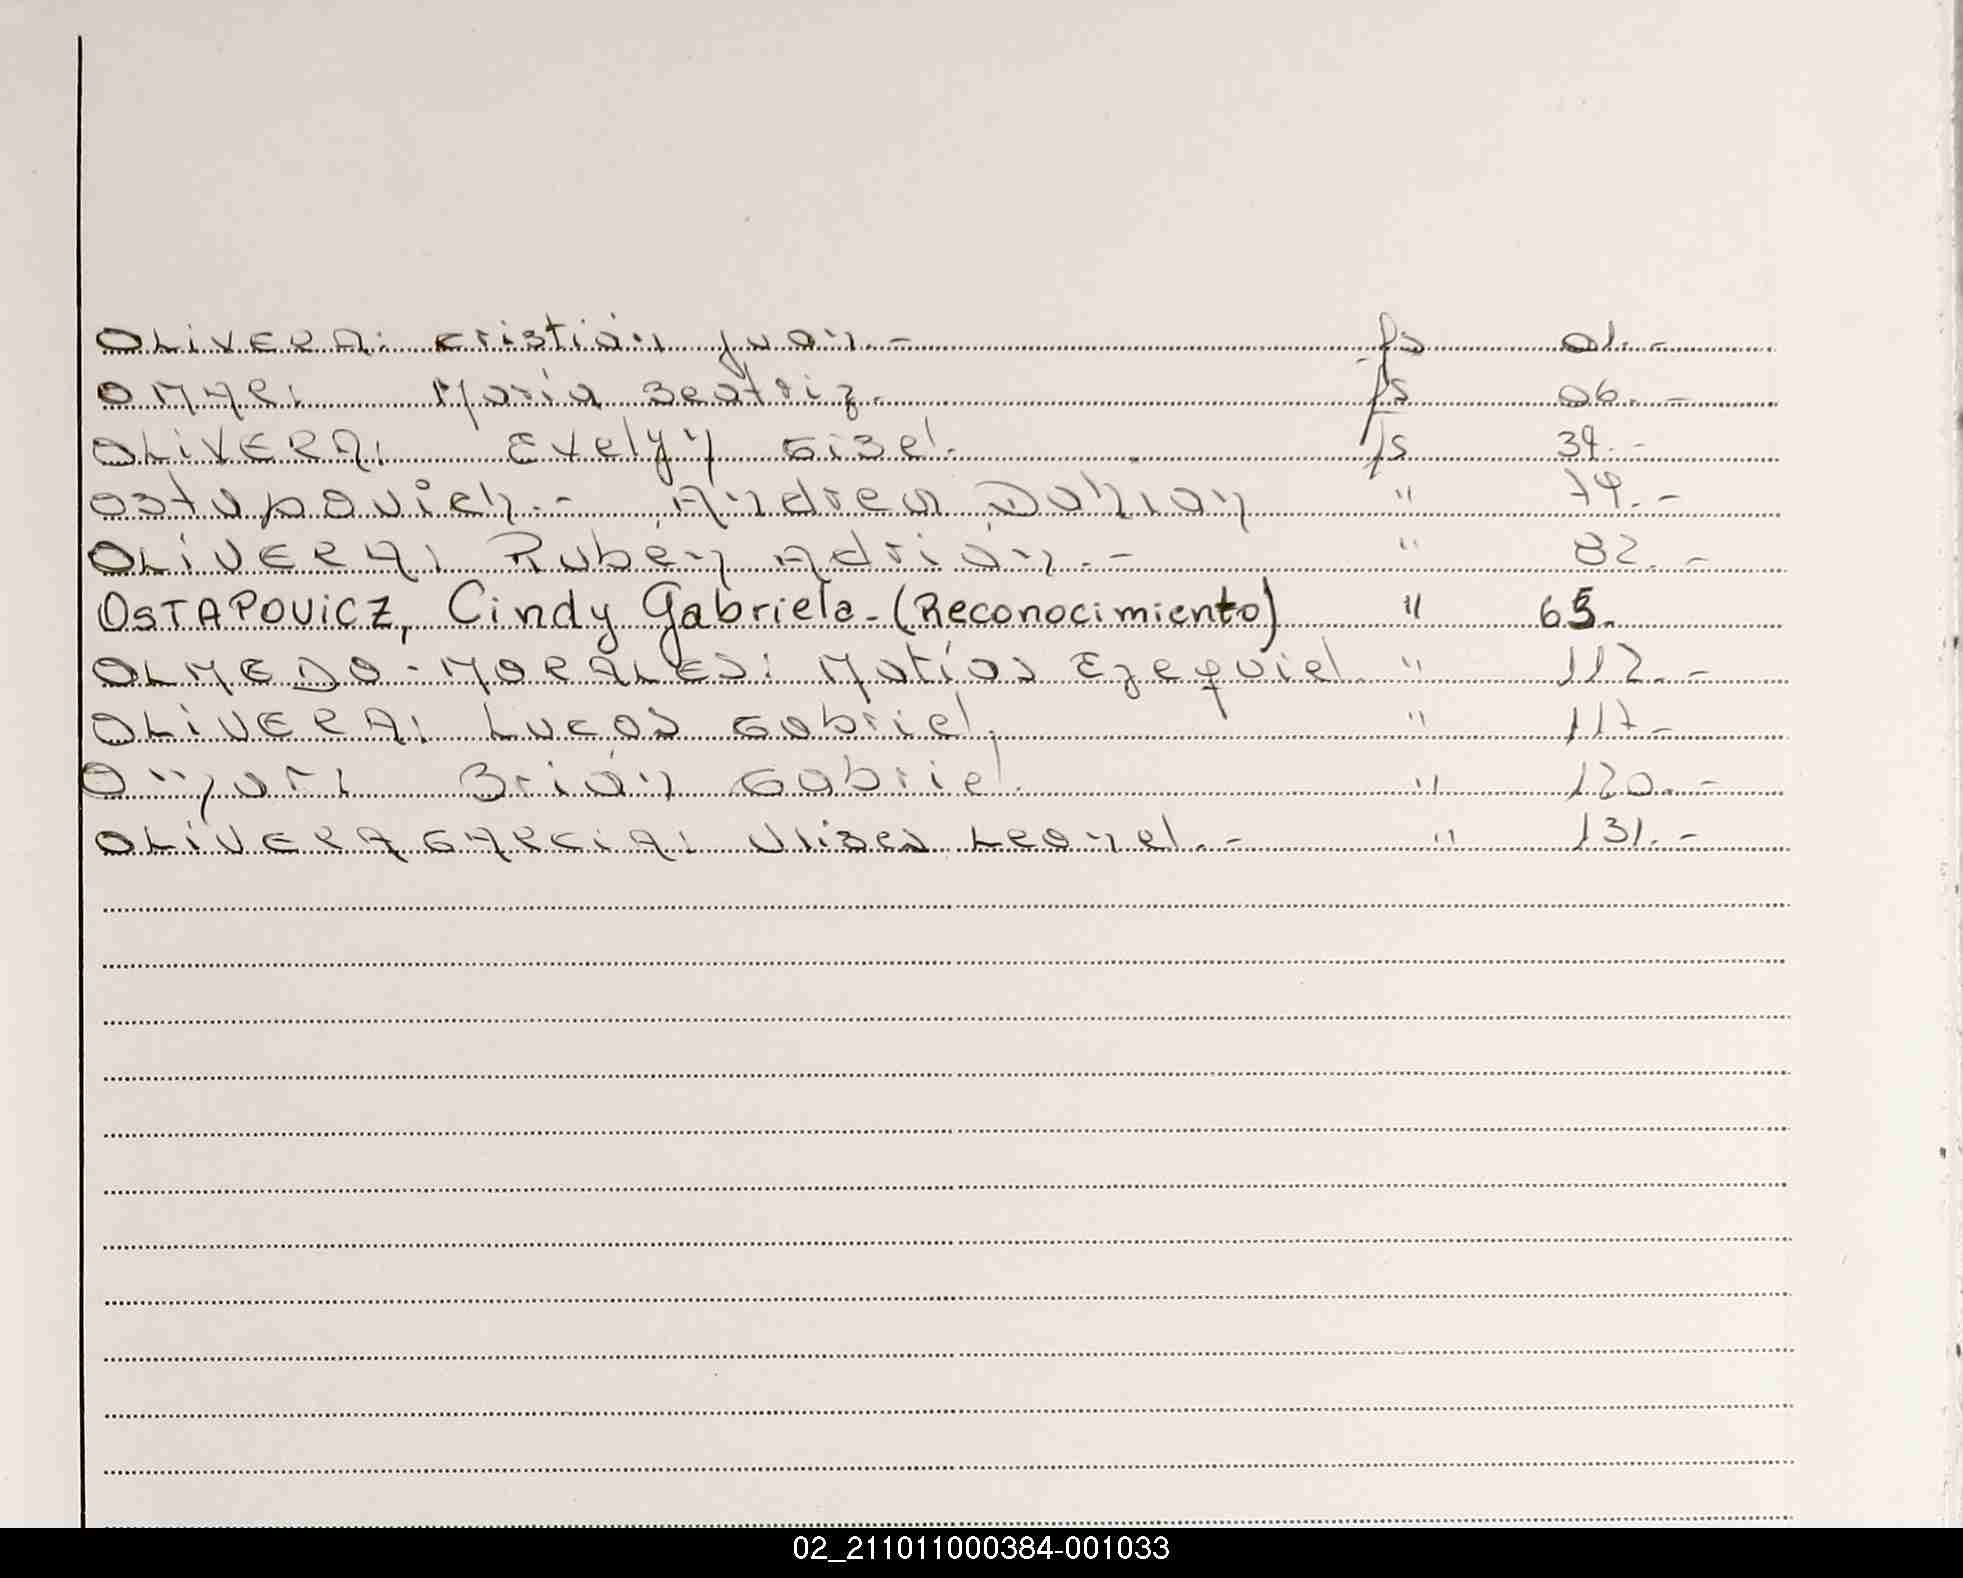 OLIVERA: Cristián Juan.- fs 01.-
OMAR: María Beatriz. fs 06.-
OLIVERA: Evelyn Gisel. fs 39.-
Ostapovich.- Andrea Dahian " 79.-
OLIVERA: Rubén Adrián.- " 82.-
OSTAPOVICZ, Cindy Gabriela-(Reconocimiento) " 65.
OLMEDO-MORALES: Matías Ezequiel. " 112.-
OLIVERA: Lucas Gabriel, " 117-
Brián Gabriel. " 120.-
OLIVERA GARCIA: Ulises Leonel.- " 131.-
02_211011000384-001033